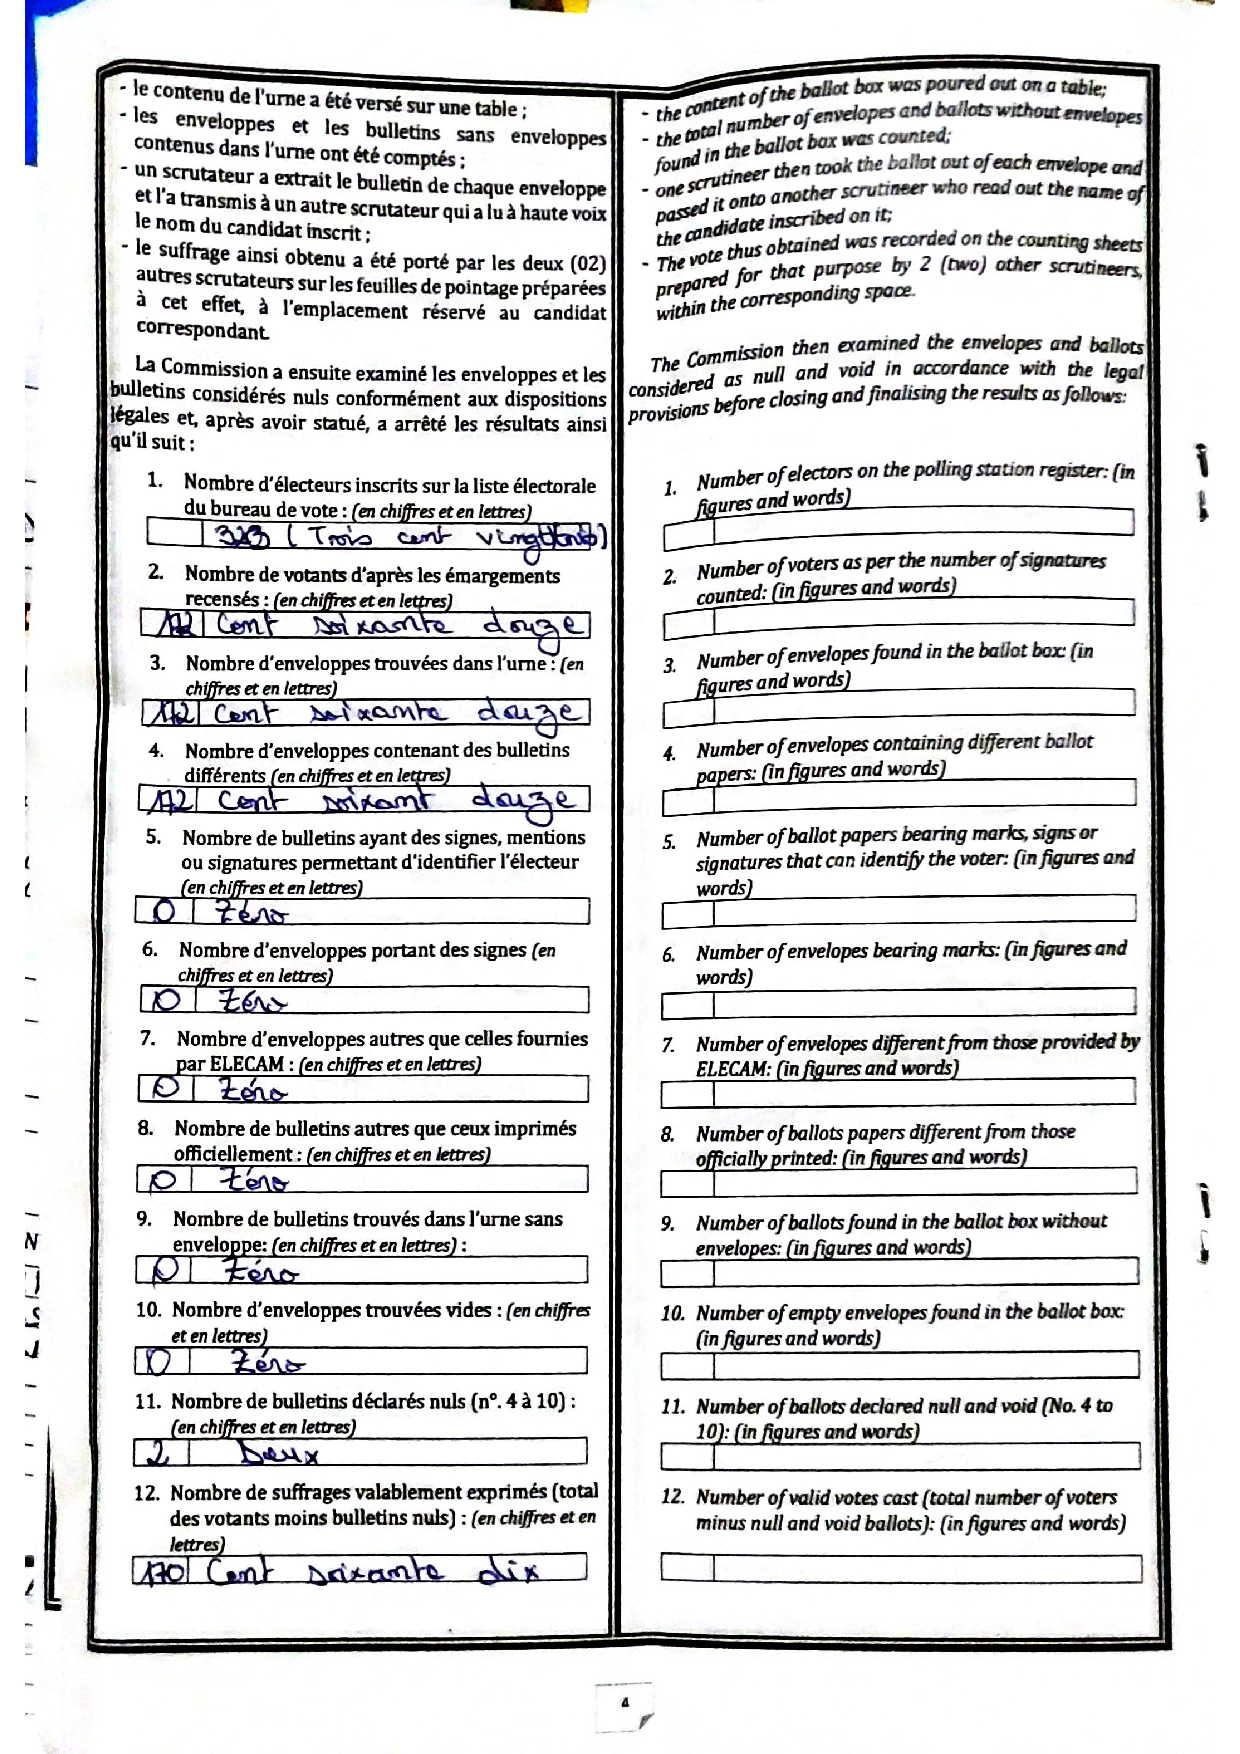 - le contenu de l'urne a été versé sur une table ;
- les enveloppes et les bulletins sans enveloppes
contenus dans l'urne ont été comptés ;
- un scrutateur a extrait le bulletin de chaque enveloppe
et l'a transmis à un autre scrutateur qui a lu à haute voix
le nom du candidat inscrit ;
- le suffrage ainsi obtenu a été porté par les deux (02)
autres scrutateurs sur les feuilles de pointage préparées
à cet effet, à l'emplacement réservé au candidat
correspondant.
La Commission a ensuite examiné les enveloppes et les
bulletins considérés nuls conformément aux dispositions
légales et, après avoir statué, a arrêté les résultats ainsi
qu'il suit :
1. Nombre d'électeurs inscrits sur la liste électorale
du bureau de vote : (en chiffres et en lettres)
323 (Trois cent vingt trois)
2. Nombre de votants d'après les émargements
recensés : (en chiffres et en lettres)
172 Cent soixante douze
3. Nombre d'enveloppes trouvées dans l'urne : (en
chiffres et en lettres)
172 Cent soixante douze
4. Nombre d'enveloppes contenant des bulletins
différents (en chiffres et en lettres)
172 Cent soixant douze
5. Nombre de bulletins ayant des signes, mentions
ou signatures permettant d'identifier l'électeur
(en chiffres et en lettres)
0 Zéro
6. Nombre d'enveloppes portant des signes (en
chiffres et en lettres)
0 Zéro
7. Nombre d'enveloppes autres que celles fournies
par ELECAM : (en chiffres et en lettres)
0 Zéro
8. Nombre de bulletins autres que ceux imprimés
officiellement : (en chiffres et en lettres)
0 Zéro
9. Nombre de bulletins trouvés dans l'urne sans
enveloppe: (en chiffres et en lettres) :
0 Zéro
10. Nombre d'enveloppes trouvées vides : (en chiffres
et en lettres)
0 Zéro
11. Nombre de bulletins déclarés nuls (n°. 4 à 10) :
(en chiffres et en lettres)
2 Deux
12. Nombre de suffrages valablement exprimés (total
des votants moins bulletins nuls) : (en chiffres et en
lettres)
170 Cent soixante dix
- the content of the ballot box was poured out on a table;
- the total number of envelopes and ballots without envelopes
found in the ballot box was counted;
- one scrutineer then took the ballot out of each envelope and
passed it onto another scrutineer who read out the name of
the candidate inscribed on it;
- The vote thus obtained was recorded on the counting sheets
prepared for that purpose by 2 (two) other scrutineers,
within the corresponding space.
The Commission then examined the envelopes and ballots
considered as null and void in accordance with the legal
provisions before closing and finalising the results as follows:
1. Number of electors on the polling station register: (in
figures and words)
2. Number of voters as per the number of signatures
counted: (in figures and words)
3. Number of envelopes found in the ballot box: (in
figures and words)
4. Number of envelopes containing different ballot
papers: (in figures and words)
5. Number of ballot papers bearing marks, signs or
signatures that can identify the voter: (in figures and
words)
6. Number of envelopes bearing marks: (in figures and
words)
7. Number of envelopes different from those provided by
ELECAM: (in figures and words)
8. Number of ballots papers different from those
officially printed: (in figures and words)
9. Number of ballots found in the ballot box without
envelopes: (in figures and words)
10. Number of empty envelopes found in the ballot box:
(in figures and words)
11. Number of ballots declared null and void (No. 4 to
10): (in figures and words)
12. Number of valid votes cast (total number of voters
minus null and void ballots): (in figures and words)
4